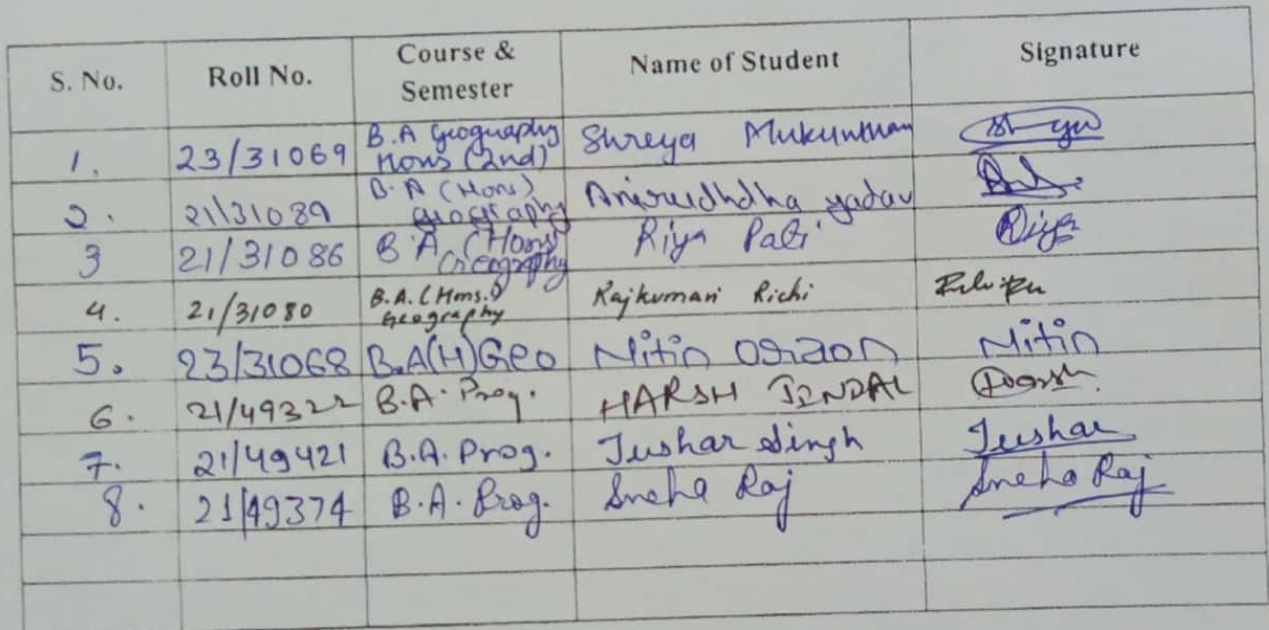 S. No. Roll No. Course & Semester Name of Student Signature
1. 23/31069 B.A Geography Hons (2nd) Shreya Mukunthan
2. 21/31089 B.A (Hons) geography Anirudhdha yadav
3 21/31086 B.A (Hons) Geography Riya Riya
4. 21/31080 B.A. (Hons.) Geography Rajkumari Richi
5. 23/31068 B.A(H) Geo Nitin Nitin
6. 21/49322 B.A. Prog. HARSH JINDAL Harsh
7. 21/49421 B.A. Prog. Tushar Singh Tushar
8. 21/49374 B.A. Prog. Sneha Raj Sneha Raj